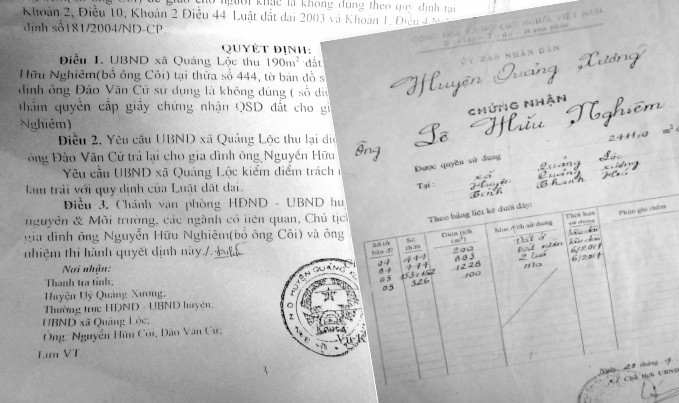 Khoản 2, Điều 10, Khoản 2 Điều 44 Luật đất đai 2003 và Khoản 1, Điều 4
định số 181/2004/NĐ-CP
QUYẾT ĐỊNH:
Điều 1. UBND xã Quảng Lộc thu 190m² đất
Hữu Nghiêm(bố ông Côi) tại thửa số 444, tờ bản đồ số
đình ông Đào Văn Cử sử dụng là không đúng ( số diện
thẩm quyền cấp giấy chứng nhận QSD đất cho gi
Nghiêm)
Điều 2. Yêu cầu UBND xã Quảng Lộc thu lại diệ
ông Đào Văn Cử trả lại cho gia đình ông Nguyễn Hữu
Yêu cầu UBND xã Quảng Lộc kiểm điểm trách
làm trái với quy định của Luật đất đai.
Điều 3. Chánh văn phòng HĐND - UBND hu
nguyên & Môi trường, các ngành có liên quan, Chủ tịch
gia đình ông Nguyễn Hữu Nghiêm(bố ông Côi) và ông
nhiệm thi hành quyết định này./.
Nơi nhận:
Thanh tra tỉnh;
Huyện Uỷ Quảng Xương;
Thường trực HĐND - UBND huyện;
UBND xã Quảng Lộc;
Ông: Nguyễn Hữu Côi, Đào Văn Cử;
Lưu VT
CỘNG HÒA XÃ HỘI CHỦ NGHĨA VIỆT NAM
ỦY BAN NHÂN DÂN
Huyện Quảng Xương
CHỨNG NHẬN
Ông Lê Hữu Nghiêm
Được quyền sử dụng 2411,0 m²
Tại: xã Quảng Lộc
Huyện Quảng Xương
Tỉnh Thanh Hoá
Theo bảng liệt kê dưới đây:
Số tờ bản đồ Số thửa Diện tích (m²) Mục đích sử dụng Thời hạn sử dụng Phần ghi thêm
04 444 200 Đất ở lâu dài
04 444 883 Đất vườn lâu dài
05 1228 2 lúa 6/2014
05 326 100 mạ 6/2014
Ngày 21 tháng 9